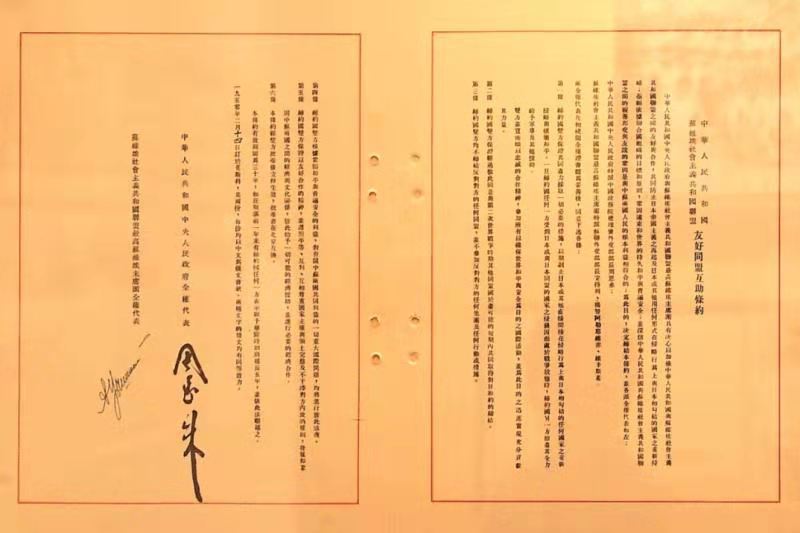 中華人民共和國
蘇維埃社會主義共和國聯盟
友好同盟互助條約
中華人民共和國中央人民政府與蘇維埃社會主義共和國聯盟最高蘇維埃主席團具有決心以加強中華人民共和國與蘇維埃社會主義
共和國聯盟之間的友好與合作，共同防止日本帝國主義之再起及日本或其他用任何形式在侵略行為上與日本相勾結的國家之重新侵
略；亟願依據聯合國組織的目標和原則，鞏固遠東和世界的持久和平與普遍安全；並深信中華人民共和國與蘇維埃社會主義共和國聯
盟之間的親善邦交與友誼的鞏固是與中蘇兩國人民的根本利益相符合的；為此目的，決定締結本條約，並各派全權代表如左：
中華人民共和國中央人民政府特派中國政務院總理兼外交部部長周恩來；
蘇維埃社會主義共和國聯盟最高蘇維埃主席團特派蘇聯外交部部長安得列·揚努阿勒耶維赤·維辛斯基。
兩全權代表互相校閱全權證書認為妥善後，同意下述各條：
第一條　締約國雙方保證共同盡力採取一切必要的措施，以期制止日本或其他直接間接在侵略行為上與日本相勾結的任何國家之重新
侵略與破壞和平。一旦締約國任何一方受到日本或與日本同盟的國家之侵襲因而處於戰爭狀態時，締約國另一方即盡其全力
給予軍事及其他援助。
雙方並宣佈願以忠誠的合作精神，參加所有以確保世界和平與安全為目的之國際活動，並為此目的之迅速實現充分貢獻
其力量。
第二條　締約國雙方保證經過彼此同意與第二次世界戰爭時期其他同盟國於盡可能的短期內共同取得對日和約的締結。
第三條　締約國雙方均不締結反對對方的任何同盟，並不參加反對對方的任何集團及任何行動或措施。
第四條　締約國雙方根據鞏固和平與普遍安全的利益，對有關中蘇兩國共同利益的一切重大國際問題，均將進行彼此協商。
第五條　締約國雙方保證以友好合作的精神，並遵照平等、互利、互相尊重國家主權與領土完整及不干涉對方內政的原則，發展和鞏
固中蘇兩國之間的經濟與文化關係，彼此給予一切可能的經濟援助，並進行必要的經濟合作。
第六條　本條約經雙方批准後立即生效，批准書在北京互換。
本條約有效期間為三十年，如在期滿前一年未有締約國任何一方表示願予廢除時則將延長五年，並依此法順延之。
一九五零年二月十四日訂於莫斯科，共兩份，每份均以中文與俄文書就。兩種文字的條文均有同等效力。
中華人民共和國中央人民政府全權代表
周恩來
蘇維埃社會主義共和國聯盟最高蘇維埃主席團全權代表